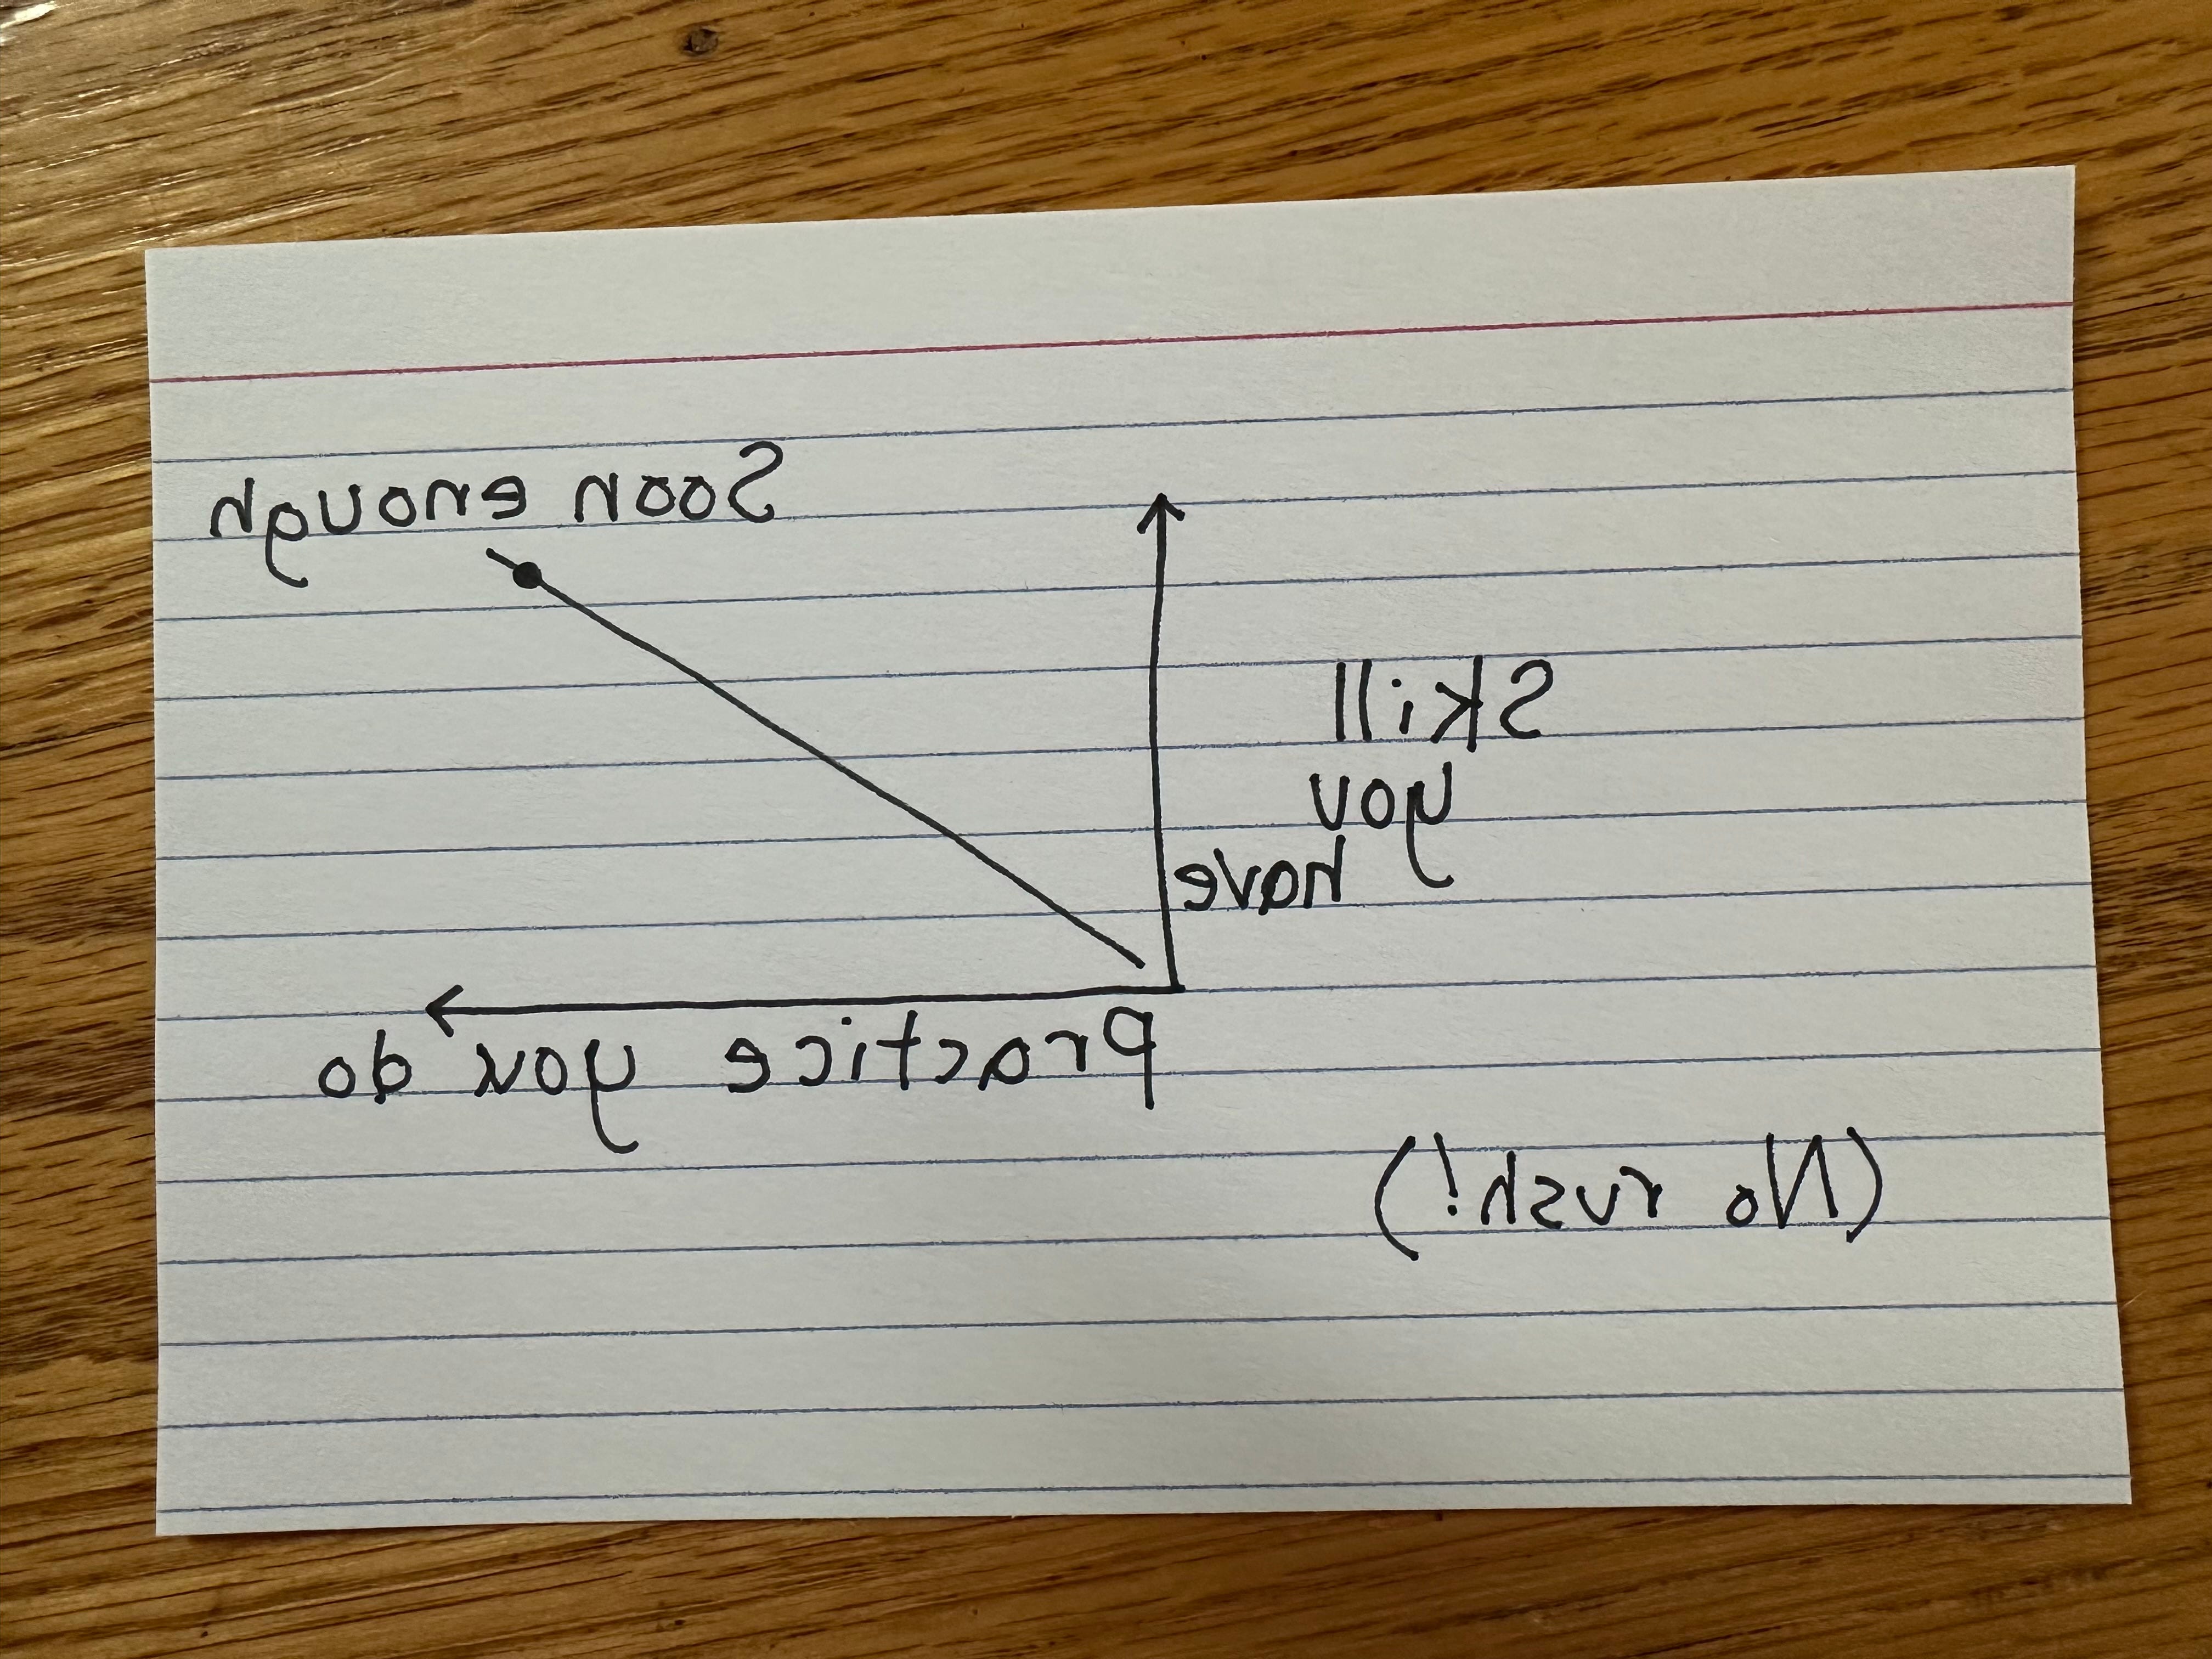 Soon enough
Skill
you
have
Practice you do
(No rush!)